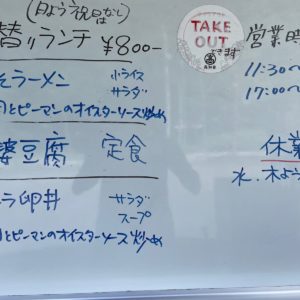 (日よう祝日なし)
替りランチ ¥800-
ラーメン 小ライス
サラダ
とピーマンのオイスターソース炒め
婆豆腐 定食
ラ卵丼 サラダ
スープ
とピーマンのオイスターソース炒め
TAKE
OUT
できます
営業時
11:30~
17:00~
休業
水.木よう